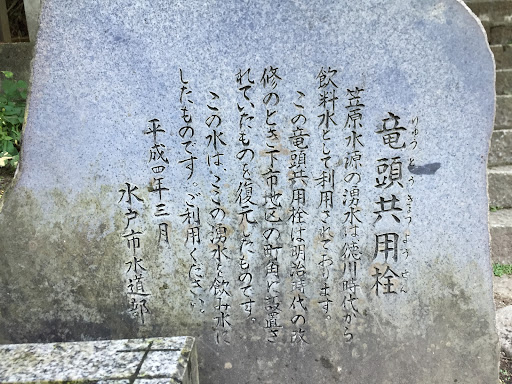 竜頭共用栓
りゅうとうきょうようせん
笠原水源の湧水は徳川時代から
飲料水として利用されております。
この竜頭共用栓は明治時代の改
修のとき下市地区の町角に設置さ
れていたものを復元したものです。
この水は、ここの湧水を飲み水に
したものです。ご利用ください。
平成四年三月
水戸市水道部